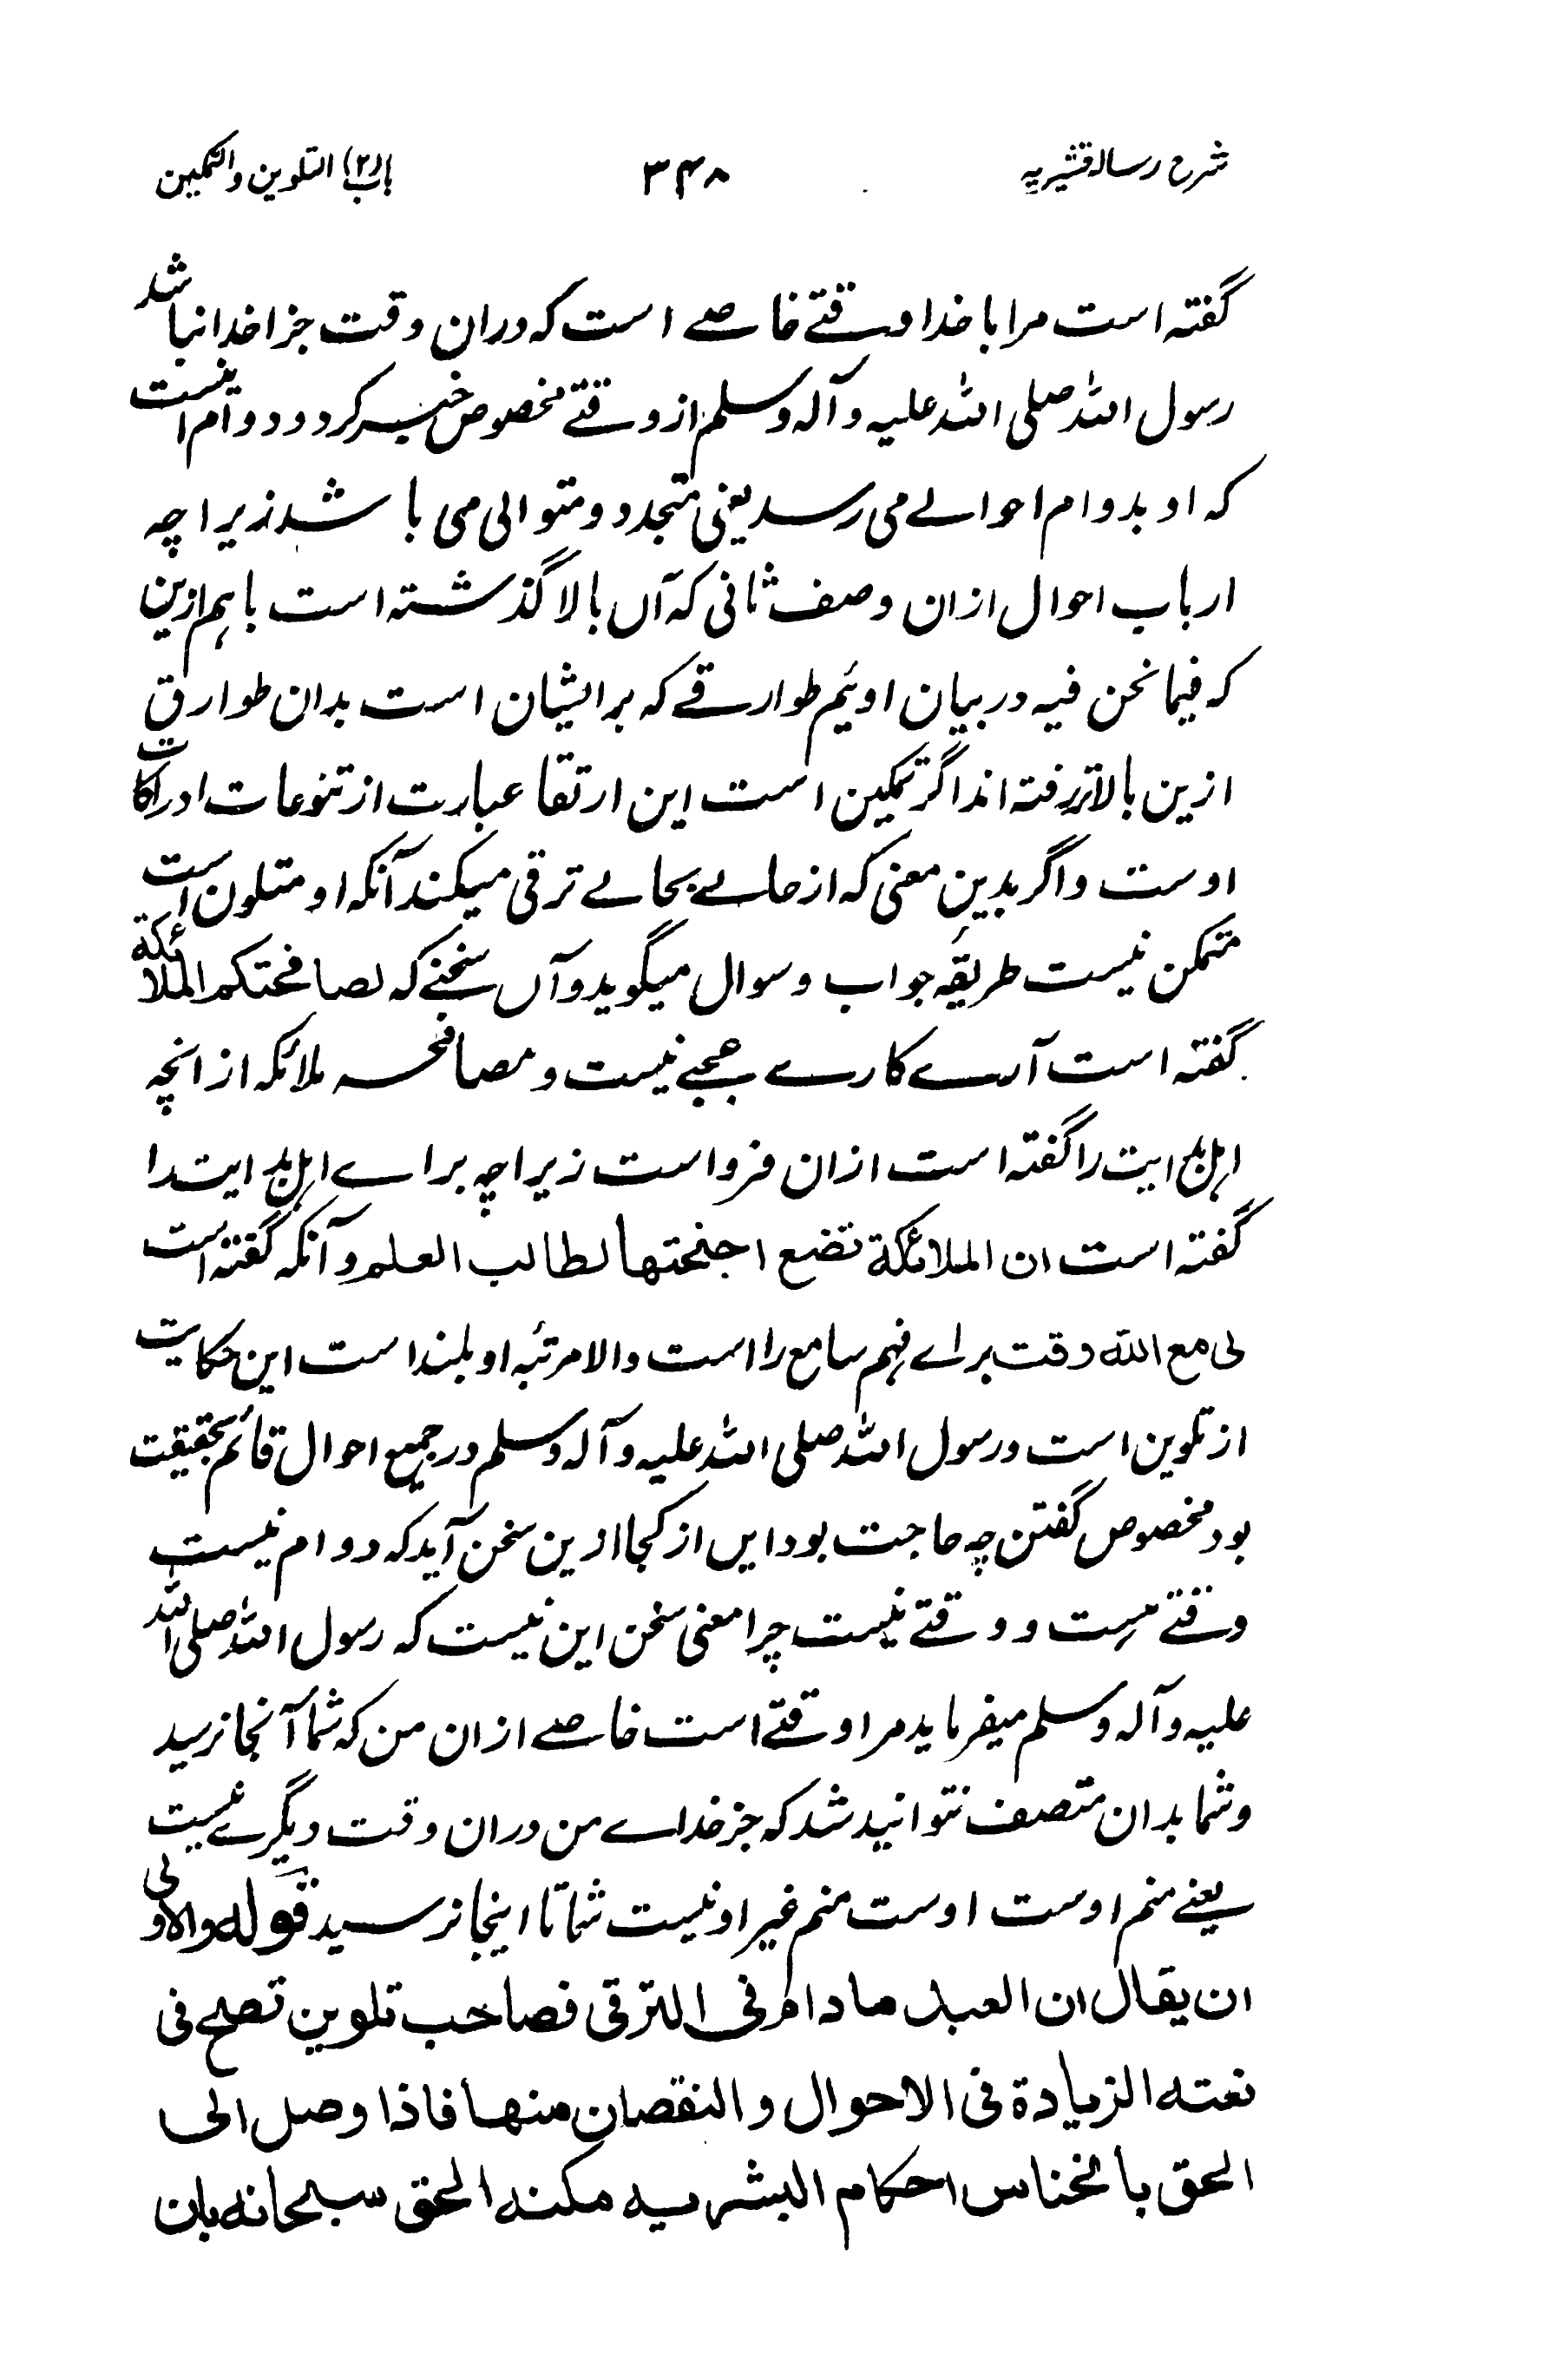 شرح رسالہ قشیریہ ۳۴۸ باب (۲) التلوین والتمکین
گفتہ است مرا با خدا وقتے خاصے است کہ دران وقت جز خدا نباشد
رسول اللہ صلی اللہ علیہ وآلہ وسلم از وقتے مخصوص خبر کرد و دوام اینست
کہ او بدوام احوالے می رسد یعنی متجدد و متوالی می باشد زیرا چہ
ارباب احوال ازان وصف ثانی کہ آں بالا گذشتہ است با ہم ازین
کہ فیما نحن فیہ در بیان اوئیم طوارقے کہ بر ایشان است بدان طوارق
ازین بالاتر رفتہ اند اگر تمکین است این ارتقا عبارت از تنوعات ادراکات
اوست و اگر بدین معنی کہ از حالے بحالے ترقی میکند آنکہ او متلون است
متمکن نیست طریقہ جواب و سوال میگوید و آں سخنے کہ لصافحتکم الملائکۃ
گفتہ است آرے کارے عجبے نیست و مصافحہ ملائکہ از انچہ
اہل بدایت را گفتہ است ازان فرو است زیرا چہ براے اہل بدایت را
گفتہ است ان الملائکۃ تضع اجنحتها لطالب العلم و آنکہ گفتہ است
لی مع الله وقت براے فہم سامع را است والا مرتبۂ او بلند است این حکایت
از تلوین است و رسول اللہ صلی اللہ علیہ وآلہ وسلم در جمیع احوال قائم بحقیقت
بود مخصوص گفتن چہ حاجت بود ایں از کجا ازین سخن آید کہ دوام نیست
وقتے ہست و وقتے نیست چرا معنی سخن این نیست کہ رسول اللہ صلی اللہ
علیہ وآلہ وسلم میفرماید مرا وقتے است خاصے ازان من کہ شما آنجا نرسید
و شما بدان متصف نتوانید شد کہ جز خداے من دران وقت دیگرے نیست
یعنے منم اوست اوست منم غیر او نیست شما تا اینجا نرسید قولہ والاولی
ان يقال ان العبد مادام فى الترقى فصاحب تلوين تصح فى
نعته الزيادة فى الاحوال والنقصان منها فاذا وصل الى
الحق بانخناس احكام البشريه مكنه الحق سبحانه بان